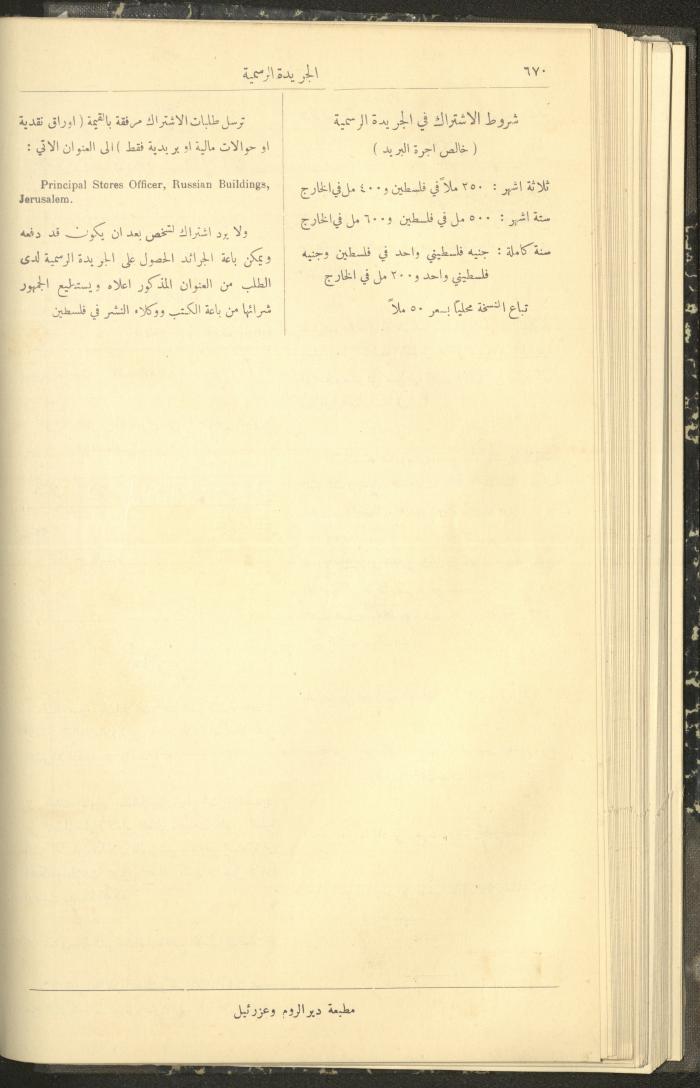 ٦٧٠
الجريدة الرسمية
شروط الاشتراك في الجريدة الرسمية
( خالص اجرة البريد )
ثلاثة اشهر : ٢٥٠ ملاً في فلسطين و٤٠٠ مل في الخارج
ستة اشهر : ٥٠٠ مل في فلسطين و٦٠٠ مل في الخارج
سنة كاملة : جنيه فلسطيني واحد في فلسطين وجنيه
فلسطيني واحد و٢٠٠ مل في الخارج
تباع النسخة محلياً بسعر ٥٠ ملاً
ترسل طلبات الاشتراك مرفقة بالقيمة ( اوراق نقدية
او حوالات مالية او بريدية فقط ) الى العنوان الاتي :
Principal Stores Officer, Russian Buildings,
Jerusalem.
ولا يرد اشتراك لشخص بعد ان يكون قد دفعه
ويمكن باعة الجرائد الحصول على الجريدة الرسمية لدى
الطلب من العنوان المذكور اعلاه ويستطيع الجمهور
شرائها من باعة الكتب ووكلاء النشر في فلسطين
مطبعة دير الروم وعزرئيل